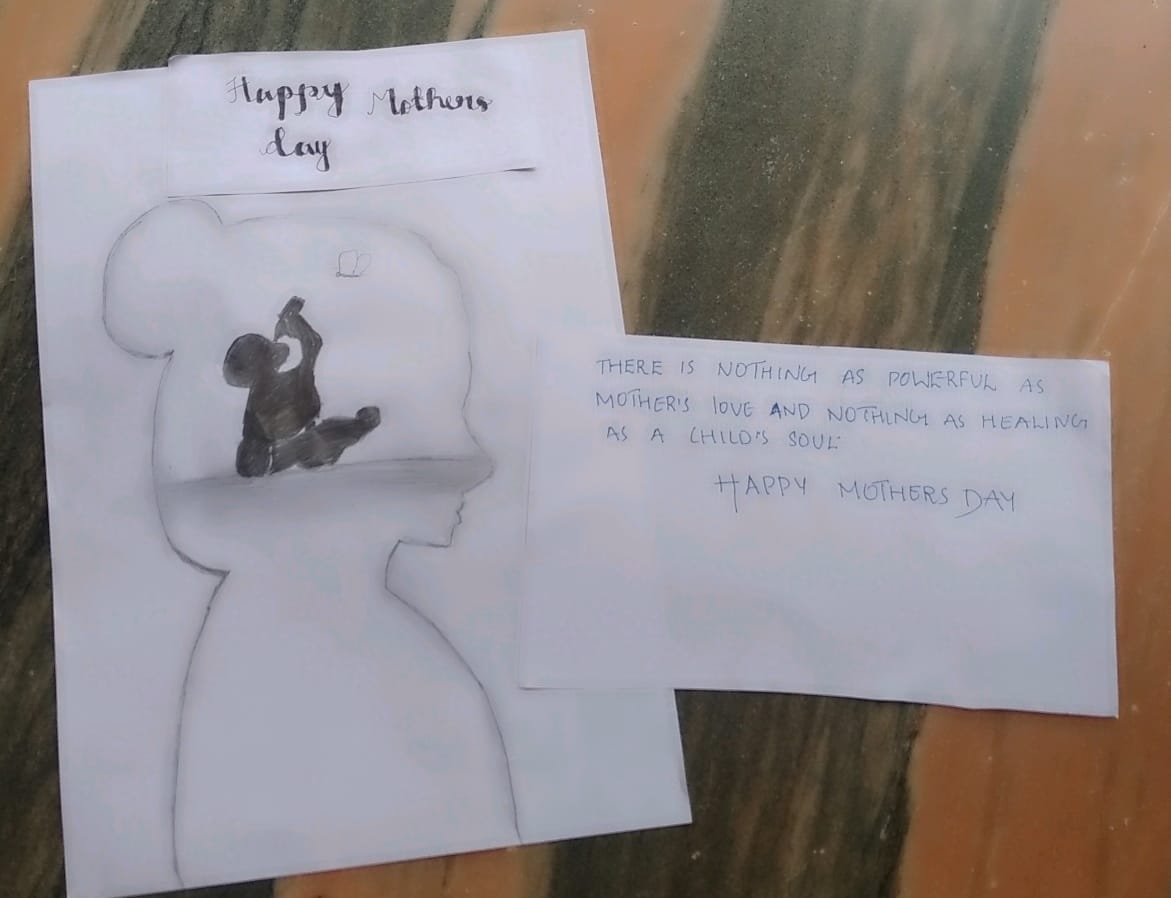 Happy Mothers
day
THERE IS NOTHING AS POWERFUL AS
MOTHER'S LOVE AND NOTHING AS HEALING
AS A CHILD'S SOUL
HAPPY MOTHERS DAY